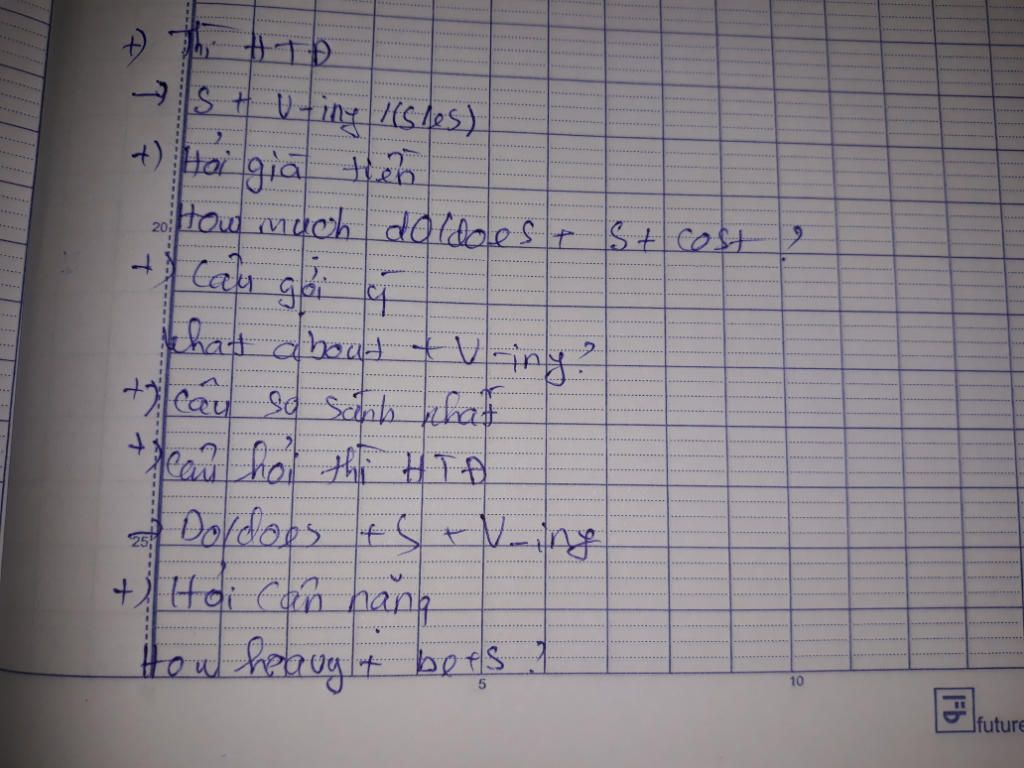 +) Thì HTĐ
→ S + V-ing /(s/es)
+) Hỏi giá tiền
20 How much do/does + S + cost ?
+) Câu gợi ý
What about + V-ing?
+) Câu so sánh nhất
+) Câu hỏi thì HTĐ
25 Do/does + S + V-ing
+) Hỏi cân nặng
How heavy + be + S ?
5 10
future